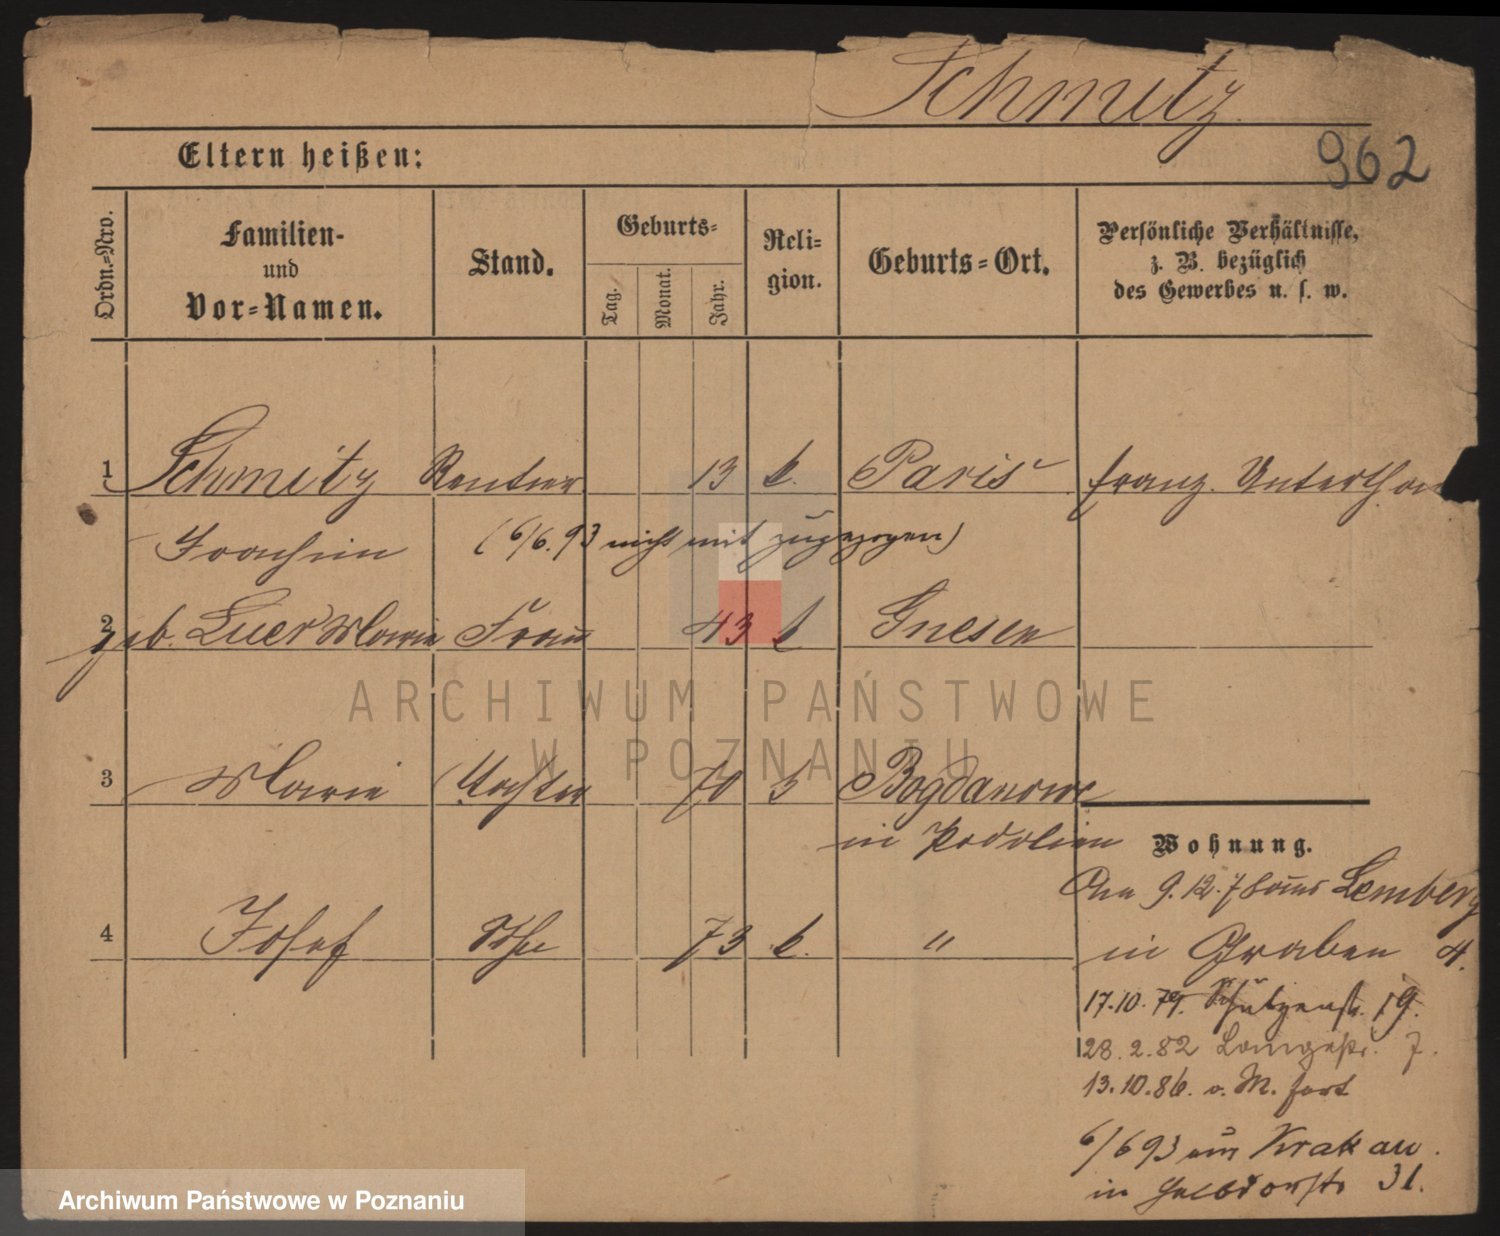 Schmitz
962
Eltern heißen:
Ordn.-Nro.
Familien-
und
Vor-Namen.
Stand.
Geburts-
Tag.
Monat.
Jahr.
Reli-
gion.
Geburts-Ort.
Persönliche Verhältnisse,
z. B. bezüglich
des Gewerbes u. s. w.
1 Schmitz Rentier 13 k. Paris franz. Unterthan
Joachim (6/6.93 nicht mit zugezogen)
2 geb. Luer Marie Frau 43 k Gnesen
ARCHIWUM PAŃSTWOWE
W POZNANIU
3 Marie Tochter 70 Bogdanowe
in Podolien
Wohnung.
Den 9.12.78 aus Lemberg
4 Josef Sohn 73 k. "
in Graben 4.
17.10.79. Schützenstr. 19.
28.2.82 Langestr. 7.
13.10.86. v. M. fort
6/6 93 aus Krakau.
in Halbdorfstr 31.
Archiwum Państwowe w Poznaniu